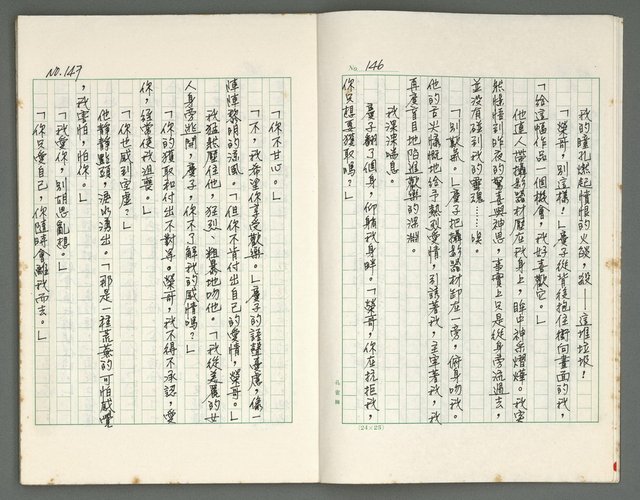 No. 146
我的瞳孔燃起憤恨的火燄，殺——這堆垃圾！
「榮哥，別這樣！」慶子從背後抱住衝向畫面的我，
「給這幅作品一個機會，我好喜歡它。」
他連人帶攝影器材壓在我身上，眸中神采熠燁。我突
然憬悟到昨夜的驚喜與神思，事實上只是從身旁流過去，
並沒有碰到我的靈魂……唉。
「別歎氣。」慶子把攝影器材卸在一旁，俯身吻我。
他的舌尖慷慨地給予熱烈愛情，引誘著我，主宰著我，我
再度盲目地陷進歡樂的深淵。
我深深喘息。
慶子翻了個身，仰躺我身畔。「榮哥，你在抗拒我，
你只想要獲取嗎？」
孔雀牌
(24×25)
NO. 147
「你不甘心。」
「不，我希望你享受歡樂。」慶子的語聲憂慮，像一
陣陣黎明的涼風。「但你不肯付出自己的愛情，榮哥。」
我猛然壓住他，狂烈、粗暴地吻他。「我從美麗的女
人身旁逃開，慶子，你不了解我的感情嗎？」
「你的獲取和付出不對等。榮哥，我不得不承認，愛
你，經常使我沮喪。」
「你也感到空虛？」
他靜靜點頭，淚水湧出。「那是一種荒蕪的可怕感覺
，我害怕，怕你。」
「我愛你，別胡思亂想。」
「你只愛自己，你隨時會離我而去。」